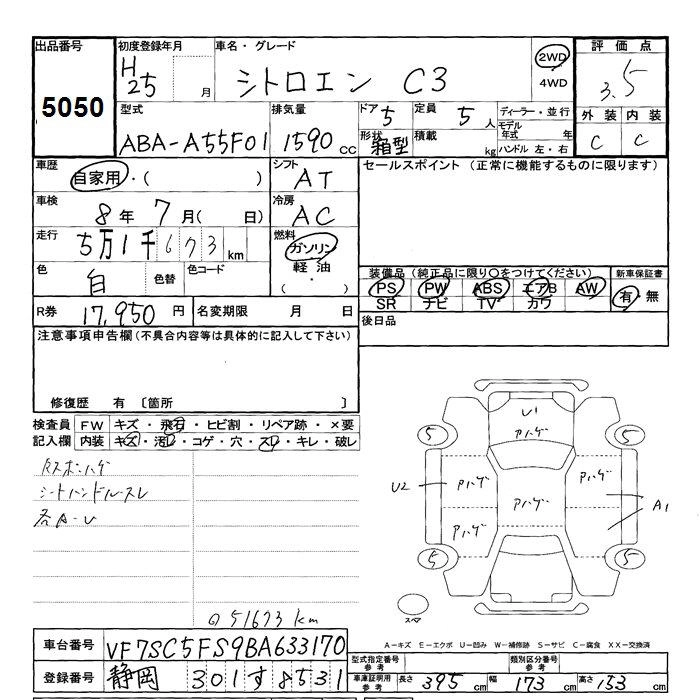 出品番号 初度登録年月 車名・グレード 評価点
5050 H25 月 シトロエン C3 2WD 4WD 3.5
外装 内装
C C
型式 排気量 ドア 5 定員 5人 ディーラー・並行
ABA-A55F01 1590cc 形状 箱型 積載 kg モデル年式 年
ハンドル 左・右
車歴 シフト セールスポイント (正常に機能するものに限ります)
自家用・( ) AT
車検 冷房
8年 7月( 日) AC
走行 燃料
5万1千673km ガソリン
軽油
( ・ )
色 白 色替 色コード
装備品(純正品に限り○をつけてください) 新車保証書
PS PW ABS エアB AW 有・無
SR ナビ TV カワ
R券 17,950円 名変期限 月 日 後日品
注意事項申告欄(不具合内容等は具体的に記入して下さい)
修復歴 有 〔箇所 〕
検査員 FW キズ・飛石・ヒビ割・リペア跡・×要
記入欄 内装 キズ・汚レ・コゲ・穴・スレ・キレ・破レ
シートハンドルスレ
各A-U
U1
Aハゲ
5 5
U2 Aハゲ Aハゲ Aハゲ A1
Aハゲ
5 5
スペマ
⊙51673km
A-キズ E-エクボ U-凹み W-補修跡 S-サビ C-腐食 XX-交換済
車台番号 VF7SC5FS9BA633170
型式指定番号 参考 類別区分番号 参考
登録番号 静岡 301す8531
車庫証明用 参考 長さ 395cm 幅 173cm 高さ 153cm